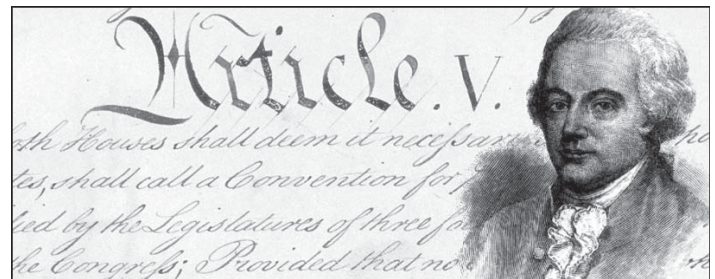 Article. V.
oth Houses shall deem it neceſsar
tes, shall call a Convention for
lied by the Legislatures of three fo
he Congreſs; Provided that no